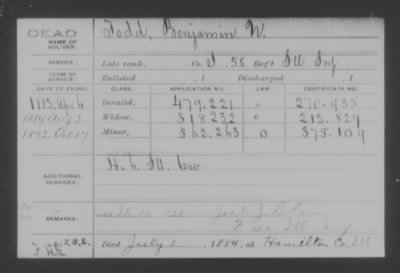 DEAD
NAME OF SOLDIER:
Todd, Benjamin W.
SERVICE:
Late rank, Co. I, 58 Reg't Ill Inf
TERM OF SERVICE:
Enlisted , 1 Discharged , 1
DATE OF FILING. CLASS. APPLICATION NO. LAW. CERTIFICATE NO.
1883 Apr 6 Invalid, 479.221 " 270.935
Aug 2 Widow, 318232 " 213.829
1892. Oct 17 Minor, 362.263 O 375.109
ADDITIONAL SERVICES:
Ill. Cav
REMARKS:
Ill Inf
Died July 2, 1884, at Hamilton Co. Ill